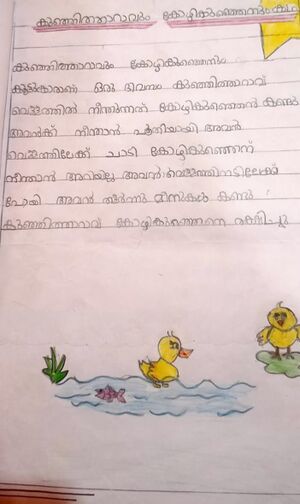 കുഞ്ഞിത്താറാവും കോഴികുഞ്ഞെന്നും
കുഞ്ഞിത്താറാവും കോഴികുഞ്ഞെന്നും
കൂട്ടുകാരാണ് ഒരു ദിവസം കുഞ്ഞിത്താറാവ്
വെള്ളത്തിൽ നീന്തുന്നത് കോഴികുഞ്ഞെൻ കണ്ടു
അവൻക്ക് നീന്താൻ പൂതിയായി അവൻ
വെള്ളത്തിലേക്ക് ചാടി കോഴികുഞ്ഞെന്ന്
നീന്താൻ അറിയില്ല അവൻ വെള്ളത്തിനടിലേക്ക്
പോയി അവൻ മീനുകൾ കണ്ടു
കുഞ്ഞിത്താറാവ് കോഴികുഞ്ഞെനെ രക്ഷിച്ചു